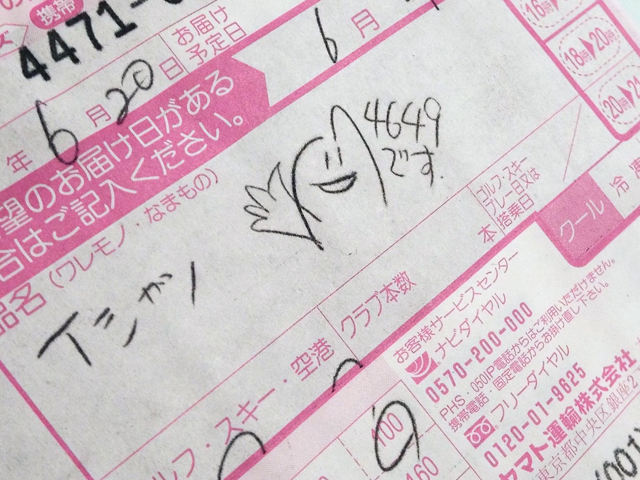 携帯
4471-
お届け
予定日
6月
年 6月20日
望のお届け日がある
合はご記入ください。
品名 (ワレモノ・なまもの)
4649
です
イシガシ
ゴルフ・スキー
プレー日又は
搭乗日
クール
ルフ・スキー・空港
クラブ本数
本
お客様サービスセンター
ナビダイヤル
0570-200-000
PHS・050IP電話からはご利用いただけません。
携帯電話・固定電話からお届け直し下さい。
フリーダイヤル
0120-01-9625
ヤマト運輸株式会社
東京都中央区銀座
18時 20時
100
160